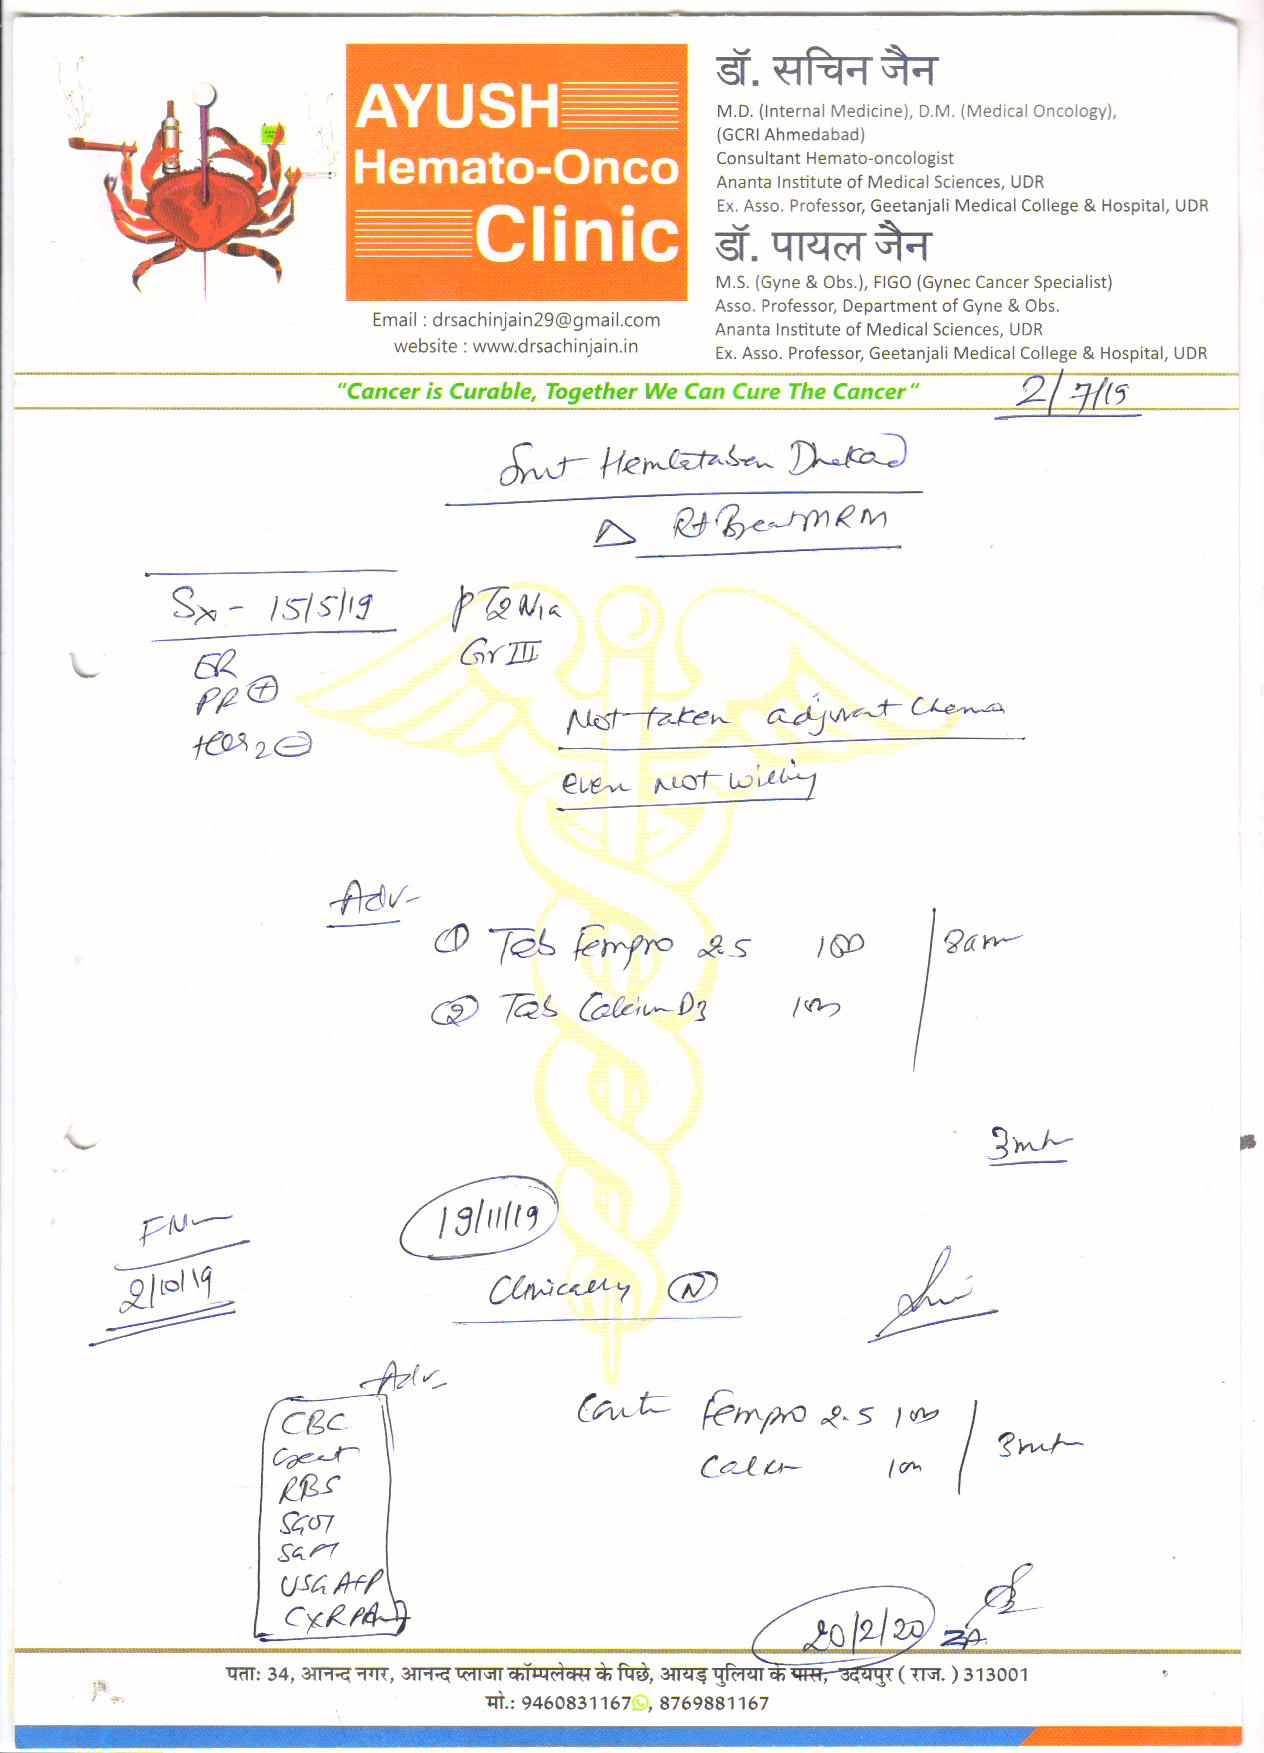 AYUSH
Hemato-Onco
Clinic
Email : drsachinjain29@gmail.com
website : www.drsachinjain.in
डॉ. सचिन जैन
M.D. (Internal Medicine), D.M. (Medical Oncology),
(GCRI Ahmedabad)
Consultant Hemato-oncologist
Ananta Institute of Medical Sciences, UDR
Ex. Asso. Professor, Geetanjali Medical College & Hospital, UDR
डॉ. पायल जैन
M.S. (Gyne & Obs.), FIGO (Gynec Cancer Specialist)
Asso. Professor, Department of Gyne & Obs.
Ananta Institute of Medical Sciences, UDR
Ex. Asso. Professor, Geetanjali Medical College & Hospital, UDR
"Cancer is Curable, Together We Can Cure The Cancer"
2/7/19
Smt Hemlataben Dhakad
△ Rt Breast MRM
Sx - 15/5/19
pT2N1a
Gr III
ER
PR ⊕
Her2 ⊖
Not taken adjuvant chemo
even not willing
Adv-
① Tab Fempro 2.5 1OD
8am
② Tab Calcium D3 1OD
3mth
2/10/19
19/11/19
Clinically Ⓝ
Adv-
CBC
Creat
RBS
SGOT
SGPT
USG A+P
CXR PA
Cont Fempro 2.5 1OD
1OD
3mth
20/2/20
पताः 34, आनन्द नगर, आनन्द प्लाजा कॉम्पलेक्स के पिछे, आयड़ पुलिया के पास, उदयपुर ( राज. ) 313001
मो.: 9460831167, 8769881167